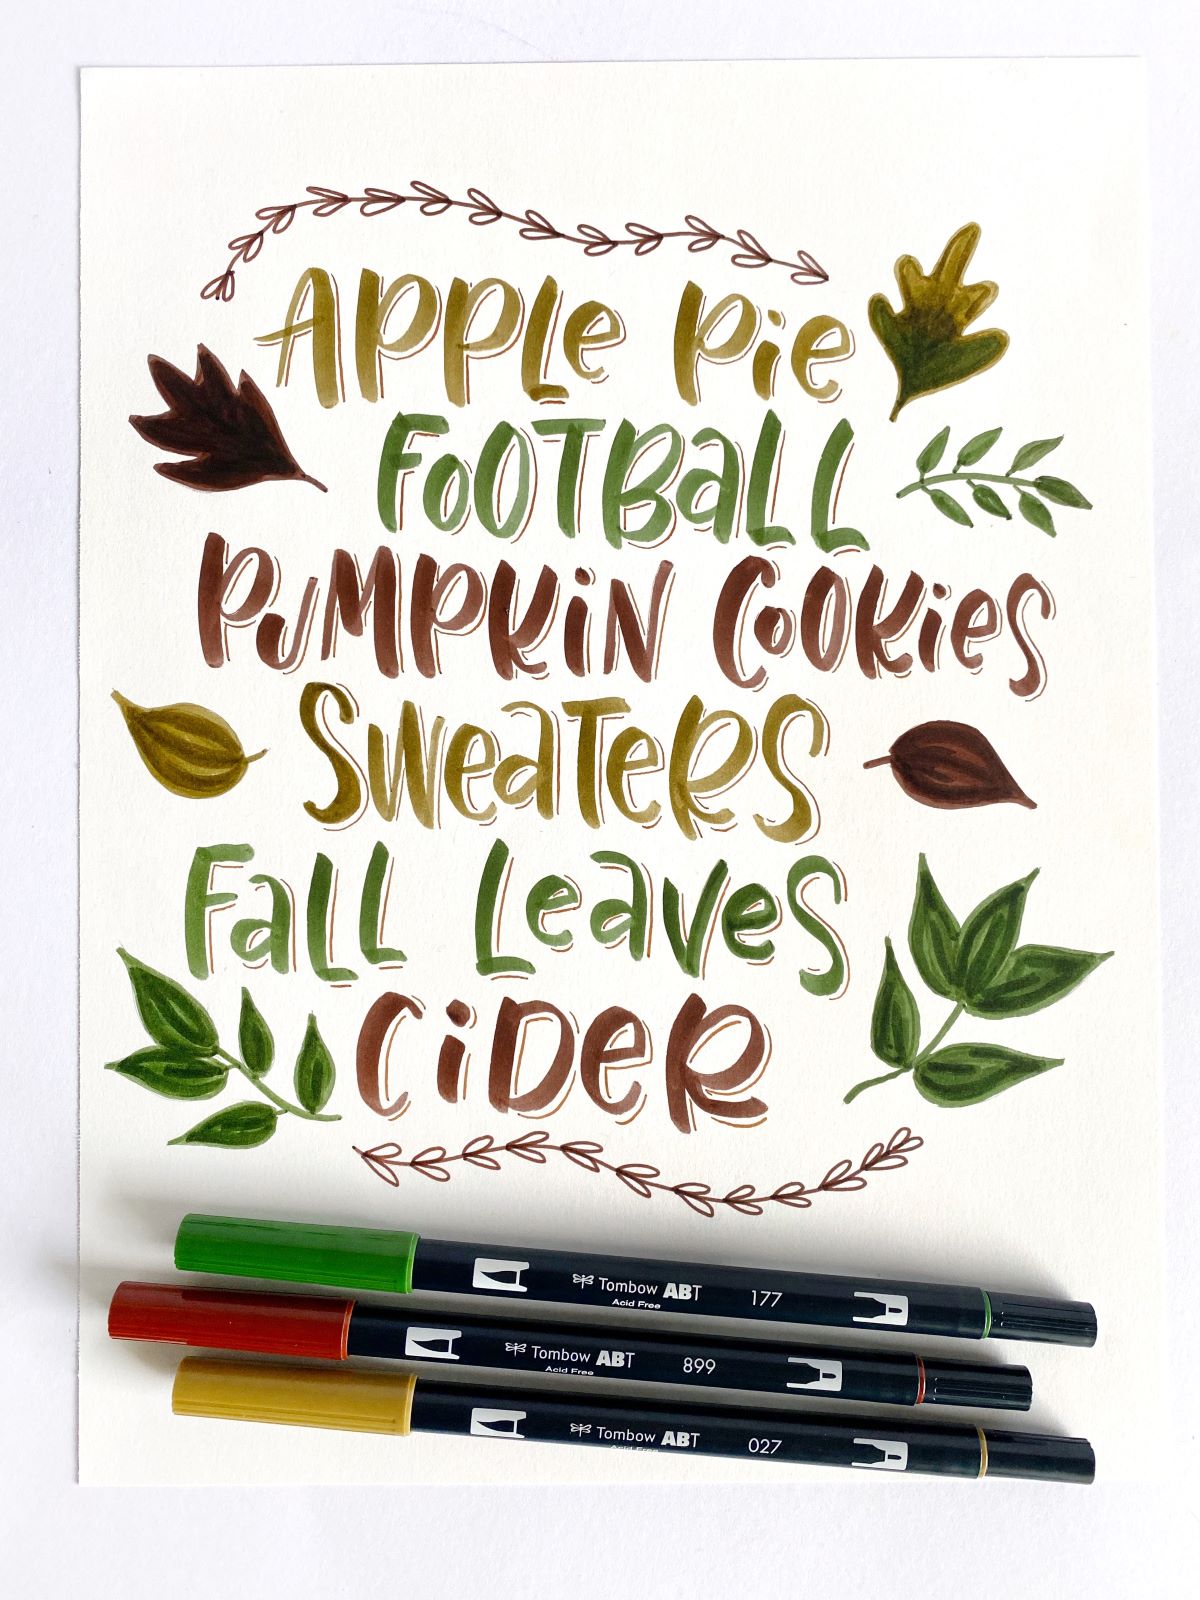 Apple Pie
Football
Pumpkin Cookies
Sweaters
Fall Leaves
Cider
Tombow ABT 177
Acid Free
Tombow ABT 899
Acid Free
Tombow ABT 027
Acid Free